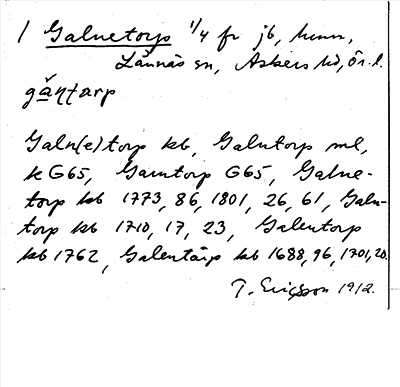 1 Galnetorp 1/4 fr jb, hmn,
Lännäs sn, Askers hd, Ör. l.
gǎṇṭarp
Galn(e)torp kb, Galntorp ml,
k G65, Gamtorp G65, Galne-
torp kb 1773, 86, 1801, 26, 61, Galn-
torp kb 1710, 17, 23, Galentorp
kb 1762, Galentårp kb 1688, 96, 1701, 20.
T. Ericsson 1912.